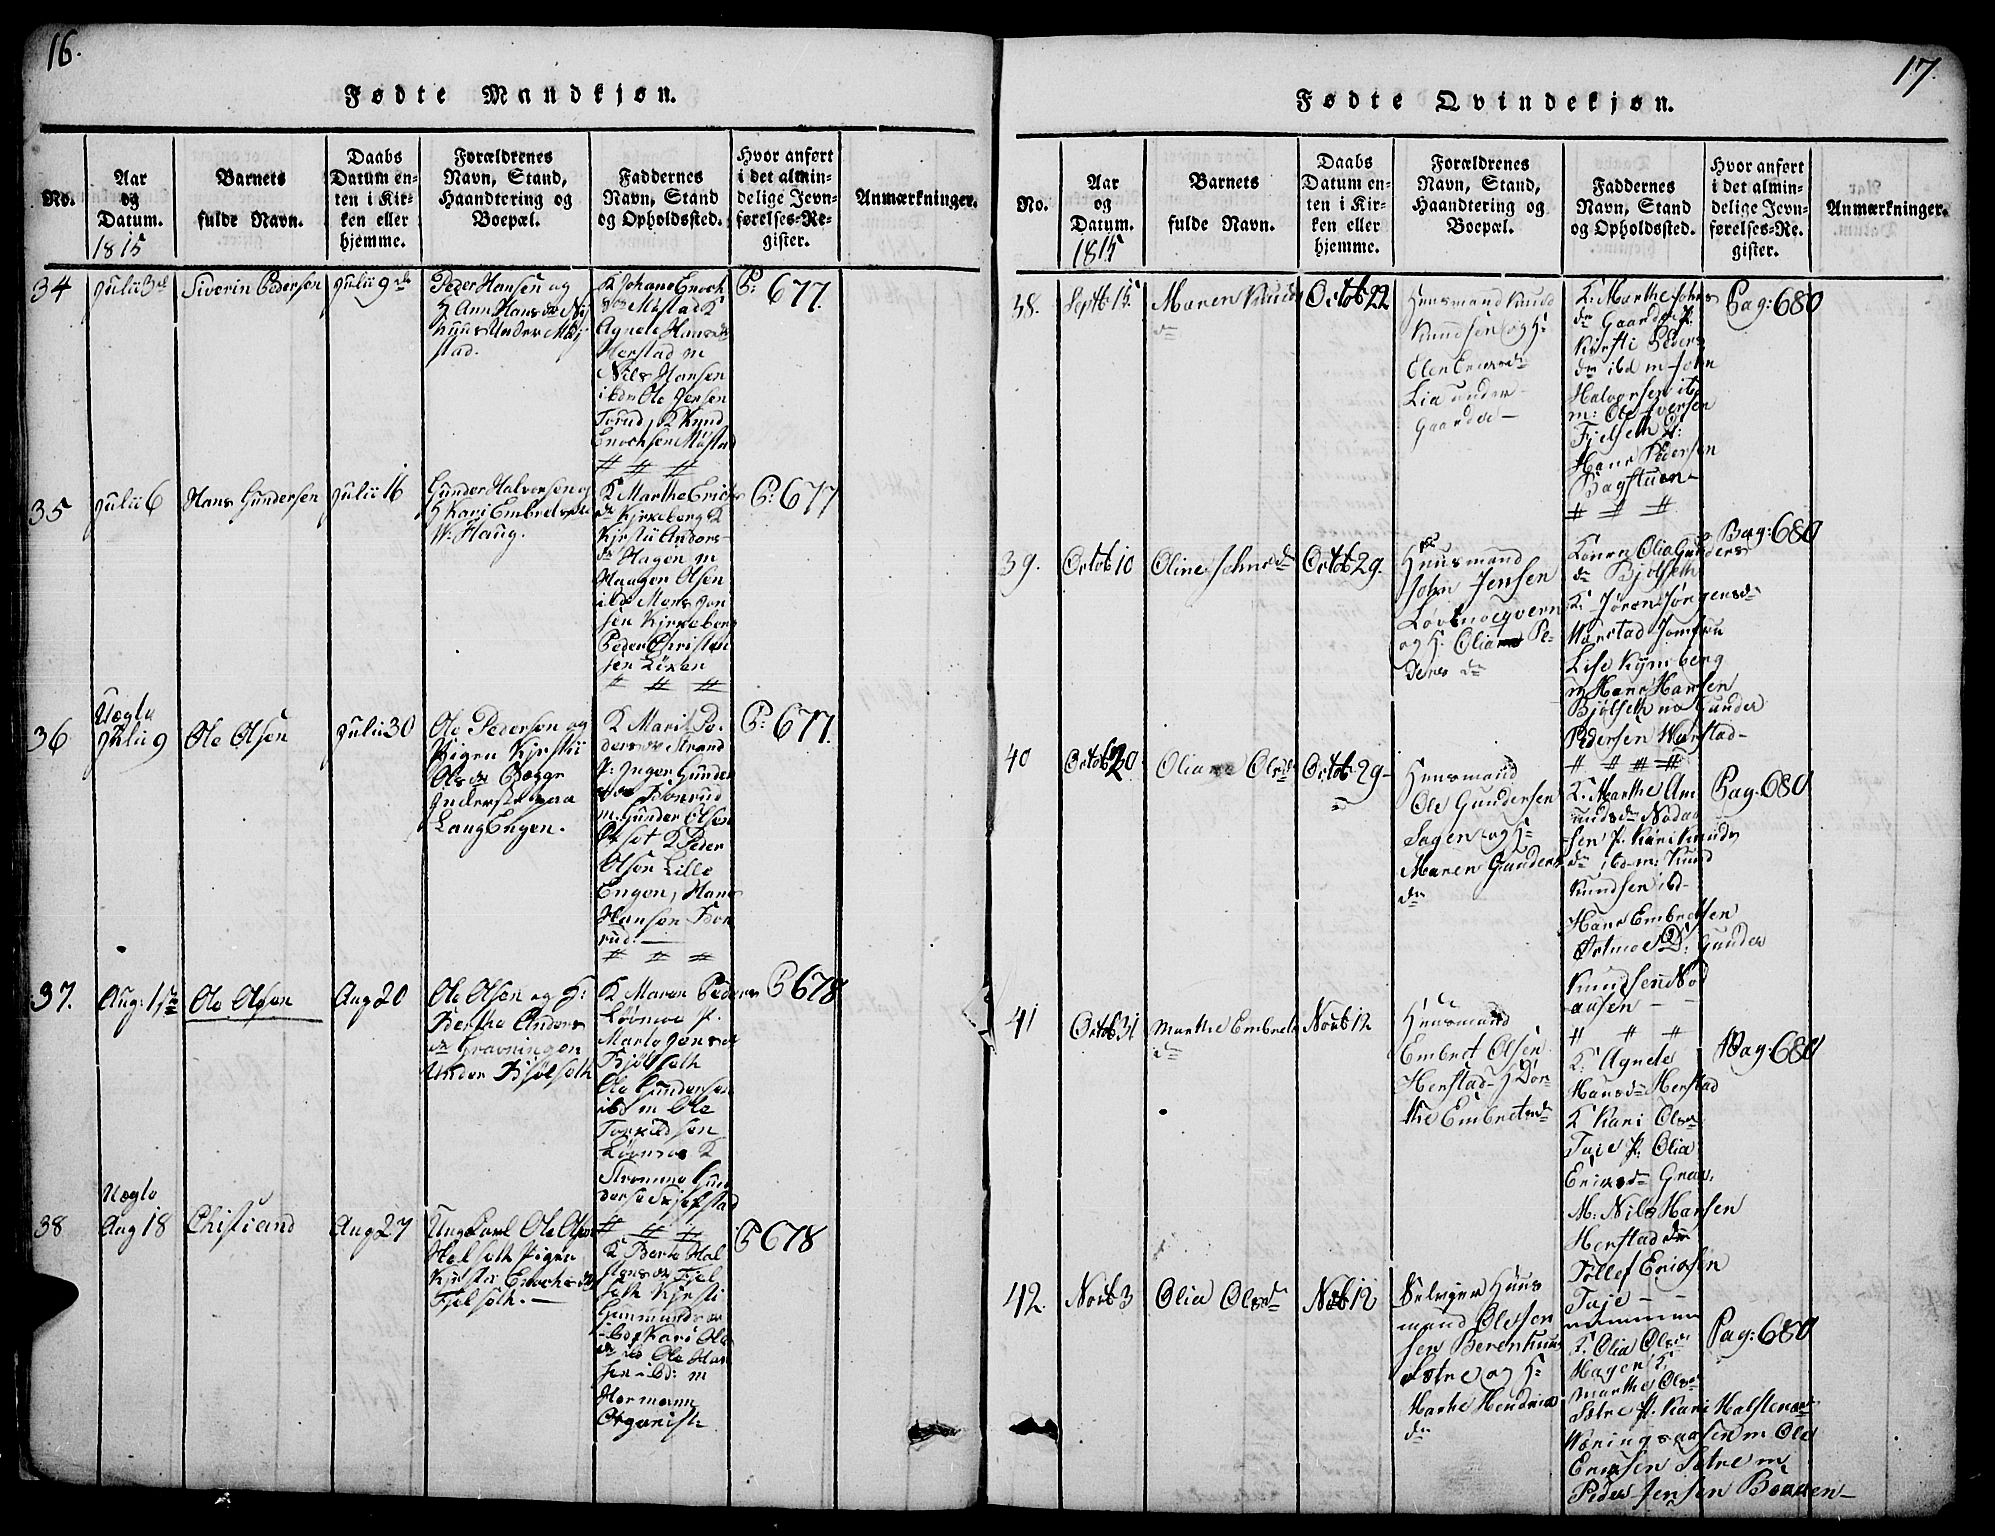 16.
Fødte Mandkjøn.
No.
Aar
og
Datum.
1815
Barnets
fulde Navn.
Daabs
Datum en-
ten i Kir-
ken eller
hjemme.
Forældrenes
Navn, Stand,
Haandtering og
Boepæl.
Faddernes
Navn, Stand
og Opholdssted.
Hvor anført
i det almin-
delige Jevn-
førelses-Re-
gister.
Anmærkninger.
34
Julii 3de
Siverin Pedersen
Julii 9de
Peder Hansen og
H Ann Hansdr
Under
stad.
K Johane Enoch
Mostad K
Agnete Hansdr
Herstad m
Nils Hansen
ibdm Ole Jensen
Torud, K Knud
Enochsen Mostad
# # #
P: 677.
35
Julii 6
Hans Gundersen
Julii 16
Gunder Halvorsen og
H Kari Embretsdr
W: Haug.
K Marthe Erichs
dr Kirkeberg K
Kirstii Anders-
dr Hagen m
Haagen Olsen
ibd: Mons Jon
sen Kirkeberg
Peder Christen
sen Løken
# # #
P: 677
36
Uegte
Julii 9
Ole Olsen
Julii 30
Ole Pedersen og
Pigen Kirstii
Olsdr Begge
Inderste paa
Lang Engen.
K Marit Pe-
dersdr Strand
P: Inger Gunder
m. Gunder Olsen
K Peder
Olsen Lille
Engen, Hans
Hansen Bon
rud. —
# # #
P: 677.
37.
Aug: 15de
Ole Olsen
Aug 20
Ole Olsen og H:
Berthe Anders
dr Gravningen
Under Bjølseth
K Maren Peders
Løvmoe P.
Marte Jonsdr
Bjølseth
Ole Gundersen
ibd m Ole
Torkildsen
Løvmoe K
# # #
P 678
38
Uegte
Aug 18
Christiand
Aug 27
Ungkarl Ole Olsen
Helseth Pigen
Kjirsten Enochsdr
Fjelseth. —
K Berte Hal
stensdr Fjel
seth Kjersti
Gunmundsdr
ibd, Kari Ols
dr ibd Ole Han
sen ibd: m
Hermann
Organist
P 678
17.
Fødte Qvindekjøn.
No.
Aar
og
Datum.
1815
Barnets
fulde Navn.
Daabs
Datum en-
ten i Kir-
ken eller
hjemme.
Forældrenes
Navn, Stand,
Haandtering og
Boepæl.
Faddernes
Navn, Stand
og Opholdssted.
Hvor anført
i det almin-
delige Jevn-
førelses-Re-
gister.
Anmærkninger.
38.
Septb 15.
Maren Knuds
dr
Octob 22
Huusmand Knud
Knudsen og H:
Elen
Lia under
Gaarder —
K. Marthe Johns
dr Gaarder P.
Kirsti Peders
dr ibd m John
Halvorsen ibd
m: Ole Iversen
Fjelseth D:
Hans Pedersen
Bagstuen —
# # #
Pag: 680
39.
Octob 10
Oline Johnsdr
Octob 29.
Huusmand
John Jensen
Løvmoeqvern
og H. Olia Pe-
ders dr
Konen Olia Gunders
dr Bjølseth
K. Jøren Jørgensdr
Harstad Jomfru
Lise Kynsberg
m Hans Hansen
Bjølseth no Gunder
Pedersen Harstad —
# # # #
Pag: 680
40
Octob 20
Oliana Olsdr
Octob 29 —
Huusmand
Ole Gundersen
Sagen og H:
Maren Gunders
dr
K. Marthe Am
unds dr Nodaa
sen P. Kari Knuds
dr ibd m: Knud
Knudsen ibd —
Hans Embretsen
Ortmoe D: Gunder
Knudsen Nod
aasen —
# # #
Pag: 680
41
Octob 31
Marthe Embrets
dr
Novb 12
Huusmand
Embret Olsen
Herstad — H Dor-
the Embretsdr
K. Agnete
Hansdr Herstad
K Kari Olsdr
Taje P. Olia
Ericsdr Graa,
M: Nils Hansen
Herstad
Tollef Ericsen
Taje — —
Pag: 680
42.
Novb 3
Olia Olsdr
Novb 12
Selveger Huus
mand Ole
sen Berenhuus
Sætre og H:
Marthe Hendrics
dr
K. Olia Olsdr
Hagen K.
Marthe Olsdr
Sætre P. Kari Halstensdr
Wæringsaasen m Ole
Ericsen Sætre m
Peder Jensen Baaven —
Pag: 680